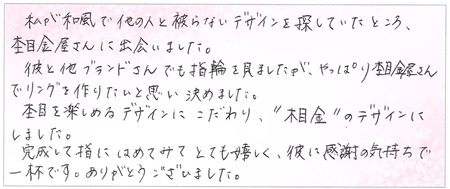 私が和風で他の人と被らないデザインを探していたところ、
杢目金屋さんに出会いました。
彼と他ブランドさんでも指輪を見ましたが、やっぱり杢目金屋さん
でリングを作りたいと思い決めました。
杢目を楽しめるデザインにこだわり、"相金"のデザインに
しました。
完成して指にはめてみてとても嬉しく、彼に感謝の気持ちで
一杯です。ありがとうございました。